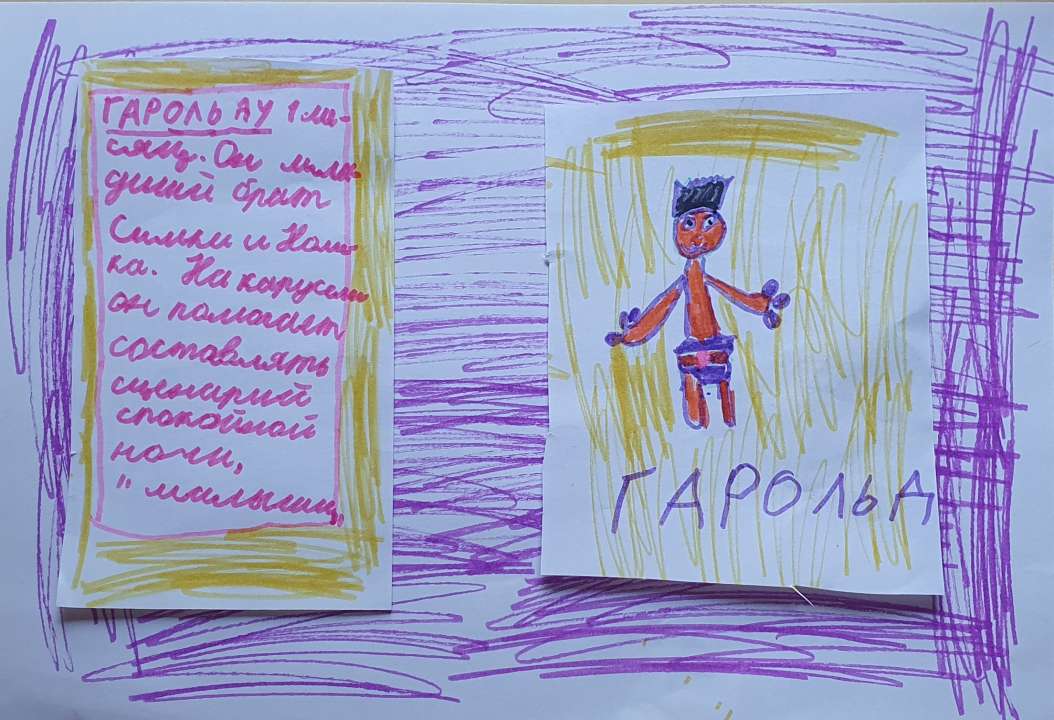 ГАРОЛЬ ДУ 1 ме-
сяц. Он млла
дший брат
Симки и Ноли-
ка. На карусели
он помогает
составлять
сценарий
спокойной
ночи,
"малыши,
ГАРОЛЬД